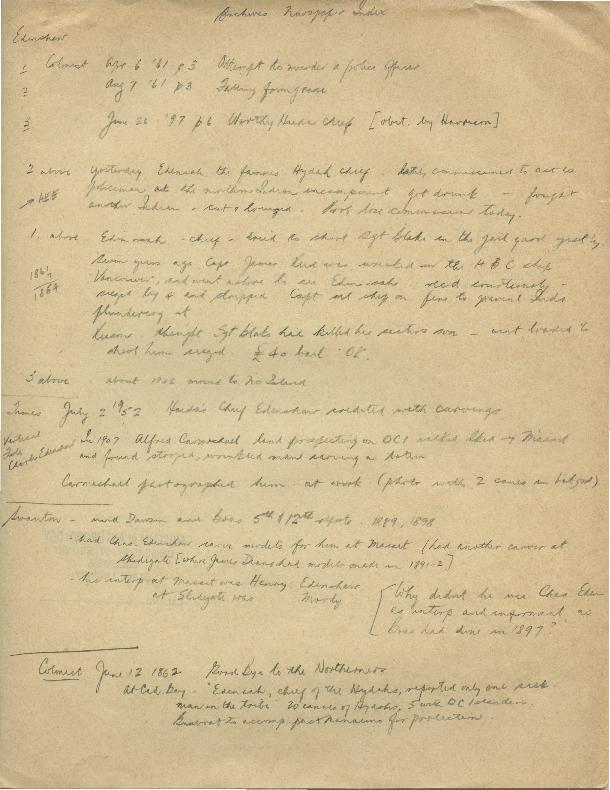 Archives Newspaper Index
Edenshaw
1 Colonist Apr 6 '61 p3 Attempt to murder a police officer
2 Aug 7 '61 p3 Falling from grace
3 June 26 '97 p6 Worthy Haida Chief [obit. by Harrison]
2 above Yesterday Edensah the famous Hydah chief. lately commissioned to act as
policeman at the northern Indian encampment got drunk — fought
another Indian - cut & bruised. Will lose commission today.
1. above chief - tried to shoot Sgt Blake in the jail yard yest'dy
Seven years ago Capt James was wrecked in the HBC ship
Vancouver, and went above to see rec'd courteously -
seized by and stripped Capt set ship on fire to prevent Inds
plundering it
Reason. thought Sgt Blake had killed his sister's son — went loaded to
shoot him seized. £40 bail "O!".
1861
1854
3 above . about 1862 moved to No Island
Times July 2 1952 Haida's Chief Edenshaw credited with carvings
In 1907 Alfred Carmichael land prospecting on QCI walked Sked → Masset
and found stooped, wrinkled man carving a totem
Charles Edenshaw
Carmichael photographed him at work (photo with 2 canes in bkgrd)
Swanton - used Dawson and Boas 5th & 12th repts. 1889, 1898
- had Chas. Edenshaw carve models for him at Masset (had another carver at
Skidegate [where James Deans had models made in 1891-2]
- his interp at Masset was Henry Edenshaw
at Skidegate was Moody
[Why didn't he use Chas. Eden
as interp and informant as
Boas had done in 1897?
Colonist June 12 1862 Good bye to the Northerners
At Cad. Bay. "Edensah, chief of the Hydahs, reported only one sick
man in the tribe" 20 canoes of Hydahs, 5 with QC Islanders.
Gunboat to accomp. past Nanaimo for protection.